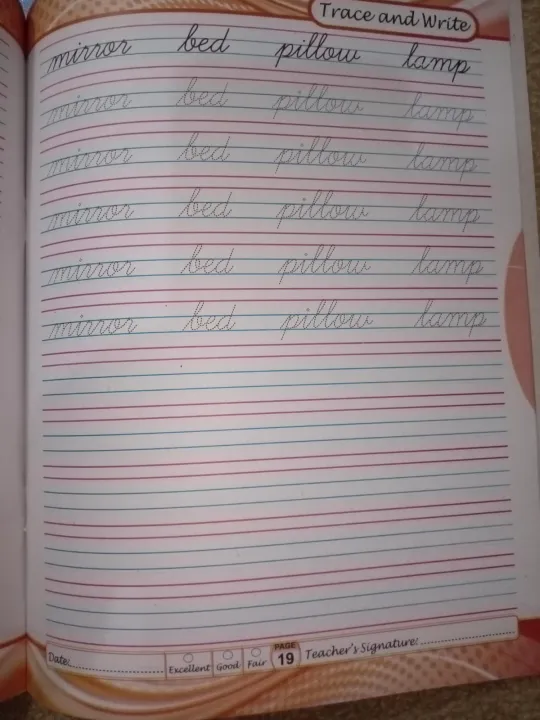 Trace and Write
mirror bed pillow lamp
mirror bed pillow lamp
mirror bed pillow lamp
mirror bed pillow lamp
mirror bed pillow lamp
mirror bed pillow lamp
Date:
Excellent Good Fair PAGE 19 Teacher's Signature: